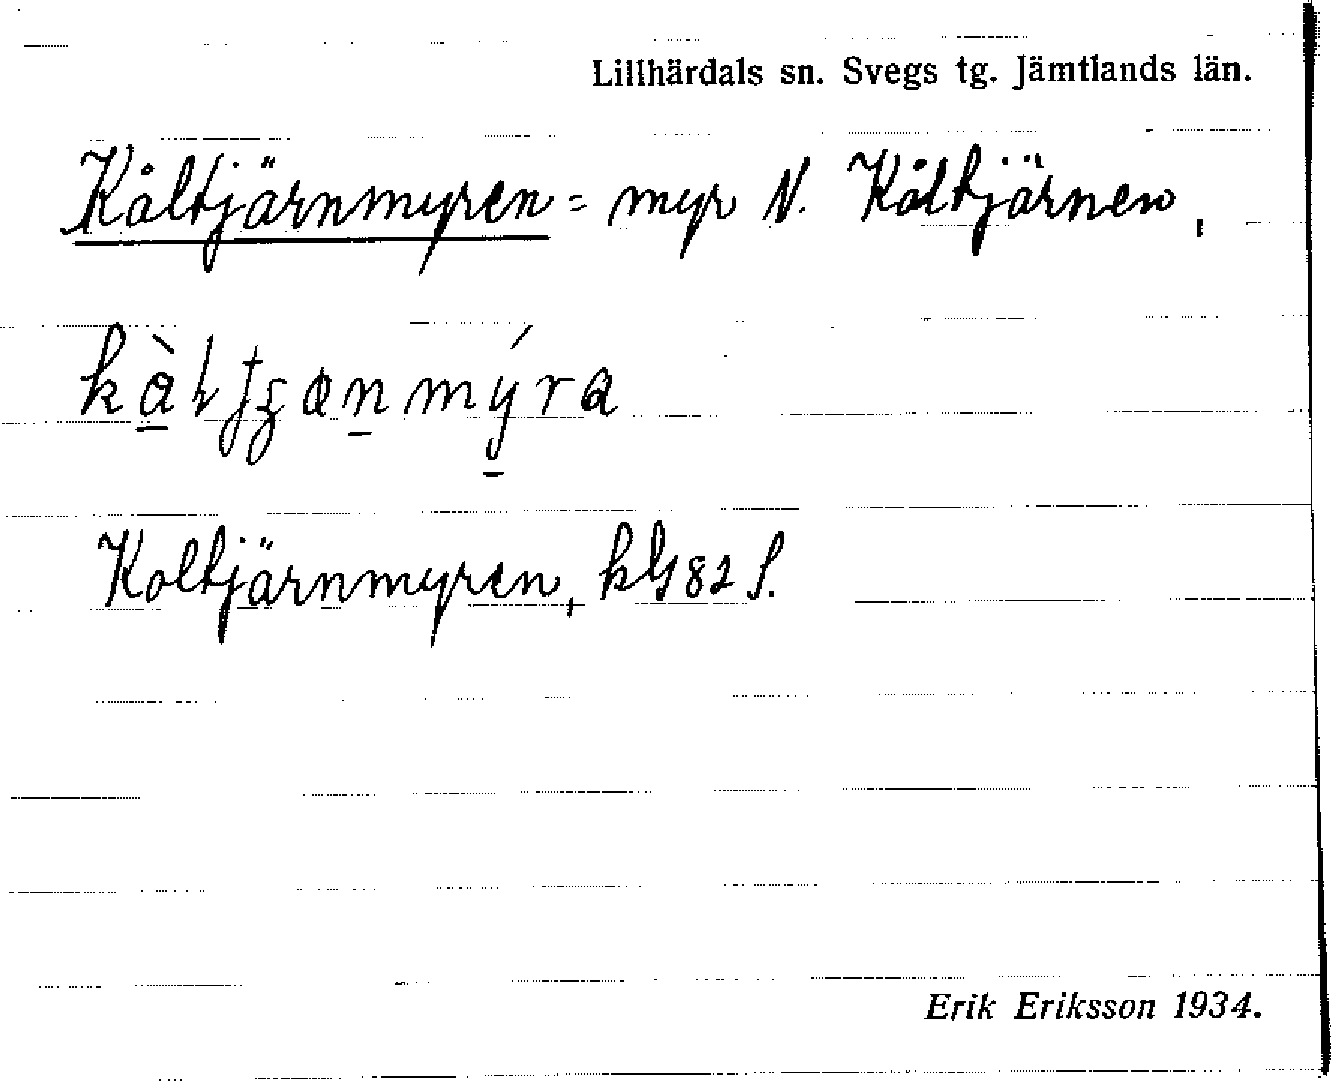 Lillhärdals sn. Svegs tg. Jämtlands län.
Kåltjärnmyren = myr N. Kåltjärnen,
Koltjärnmyren, kG 82 S.
Erik Eriksson 1934.